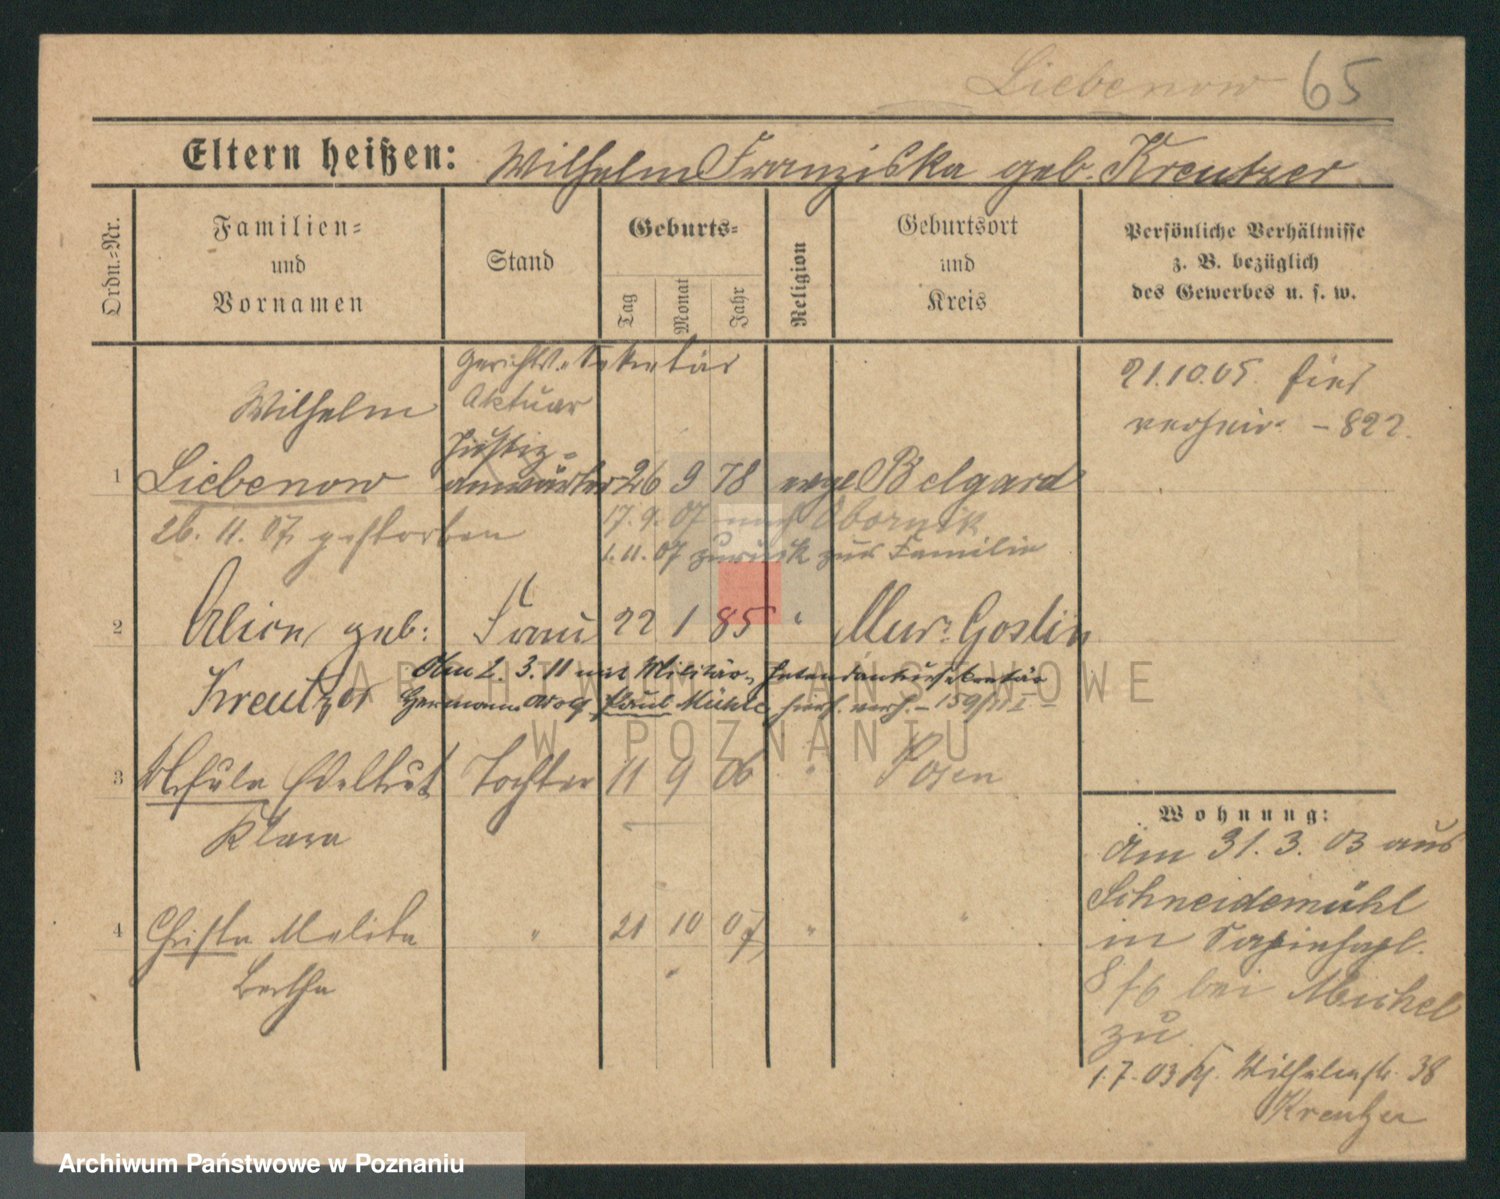 Liebenow 65
Eltern heißen: Wilhelm Franziska geb. Kreutzer
Ordn.-Nr.
Familien-
und
Vornamen
Stand
Geburts-
Tag
Monat
Jahr
Religion
Geburtsort
und
Kreis
Persönliche Verhältnisse
z. B. bezüglich
des Gewerbes u. s. w.
Gerichts-Sekretär
Aktuar
Wilhelm
Justiz-
1 Liebenow anwärter 26 9 78 evgl Belgard
21.10.05. hier
verheir. - 822.
26. 11. 07 gestorben
17. 9. 07 nach Obornik
1. 11. 07 zurück zur Familie
2 geb: Frau 22 1 85 " Mur. Goslin
Kreutzer
Am 2. 3. 11 mit Militär-Intendantursekretär
Hermann Adolf Paul Mühle, hier verh. - 159/11
3 Ursula Edeltrut Tochter 11 9 06 " Posen
Klara
4 Christa Melita " 21 10 07 " "
Bertha
Wohnung:
Am 31. 3. 03 aus
Schneidemühl
in Sapiehapl.
8 bei Michel
zu
1. 7. 03 Kl. Wilhelmstr. 38
Kreutzer
ARCHIWUM PAŃSTWOWE
W POZNANIU
Archiwum Państwowe w Poznaniu